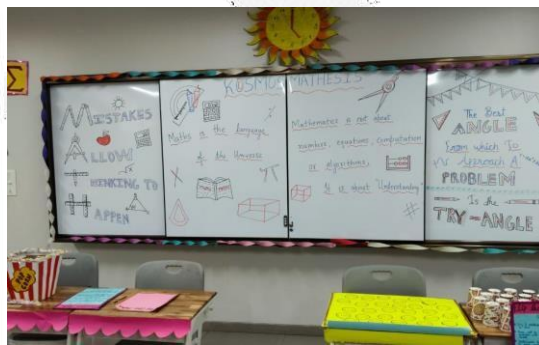 MISTAKES
ALLOW
THINKING TO
HAPPEN
KOSMOS MATHESIS
Maths is the language
of the Universe
Mathematics is not about
numbers, equations, computation
or algorithms.
It is about "Understanding"
The Best
ANGLE
From which To
Approach A
PROBLEM
Is the
TRY-ANGLE
Σ